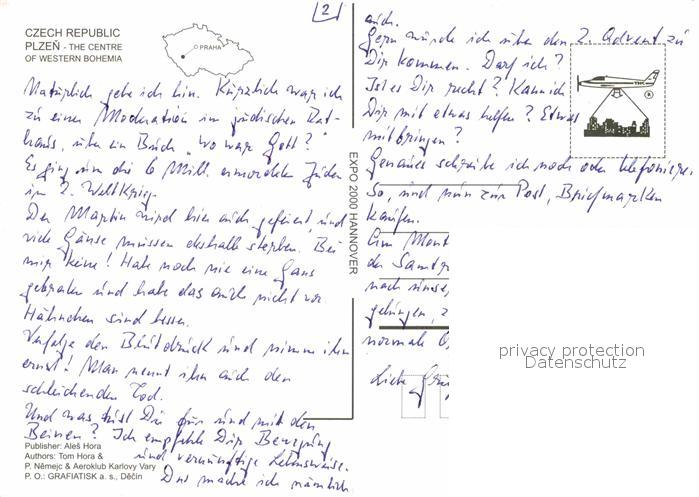 2
CZECH REPUBLIC
PLZEŇ - THE CENTRE
OF WESTERN BOHEMIA
PRAHA
Natürlich gehe ich hin. Kürzlich war ich
zu einer Moderation im jüdischen Rat-
haus, über ein Buch "wo war Gott?"
Es ging um die 6 Mill. ermordeten Juden
im 2. Weltkrieg.
Der Martin wird hier auch gefeiert und
viele Gänse müssen deshalb sterben. Bei
mir keine! Habe noch nie eine Gans
gebraten und habe das auch nicht vor.
Hähnchen sind besser.
Verfolge den Blutdruck und nimm ihn
ernst! Man nennt ihn auch den
schleichenden Tod.
Und was tust Du für und mit den
Beinen? Ich empfehle Dir Bewegung
und vernünftige Lebensweise.
Das mache ich nämlich
Publisher: Aleš Hora
Authors: Tom Hora &
P. Němejc & Aeroklub Karlovy Vary
P. O.: GRAFIATISK a. s., Děčín
EXPO 2000 HANNOVER
auch.
Gern würde ich über den 2. Advent zu
Dir kommen. Darf ich?
Ist es Dir recht? Kann ich
Dir mit etwas helfen? Etwas
mitbringen?
Genaues schreibe ich noch oder telefoniere.
So, und nun zur Post, Briefmarken
kaufen.
Am
der
nach
gelungen,
normale
Liebe
privacy protection
Datenschutz